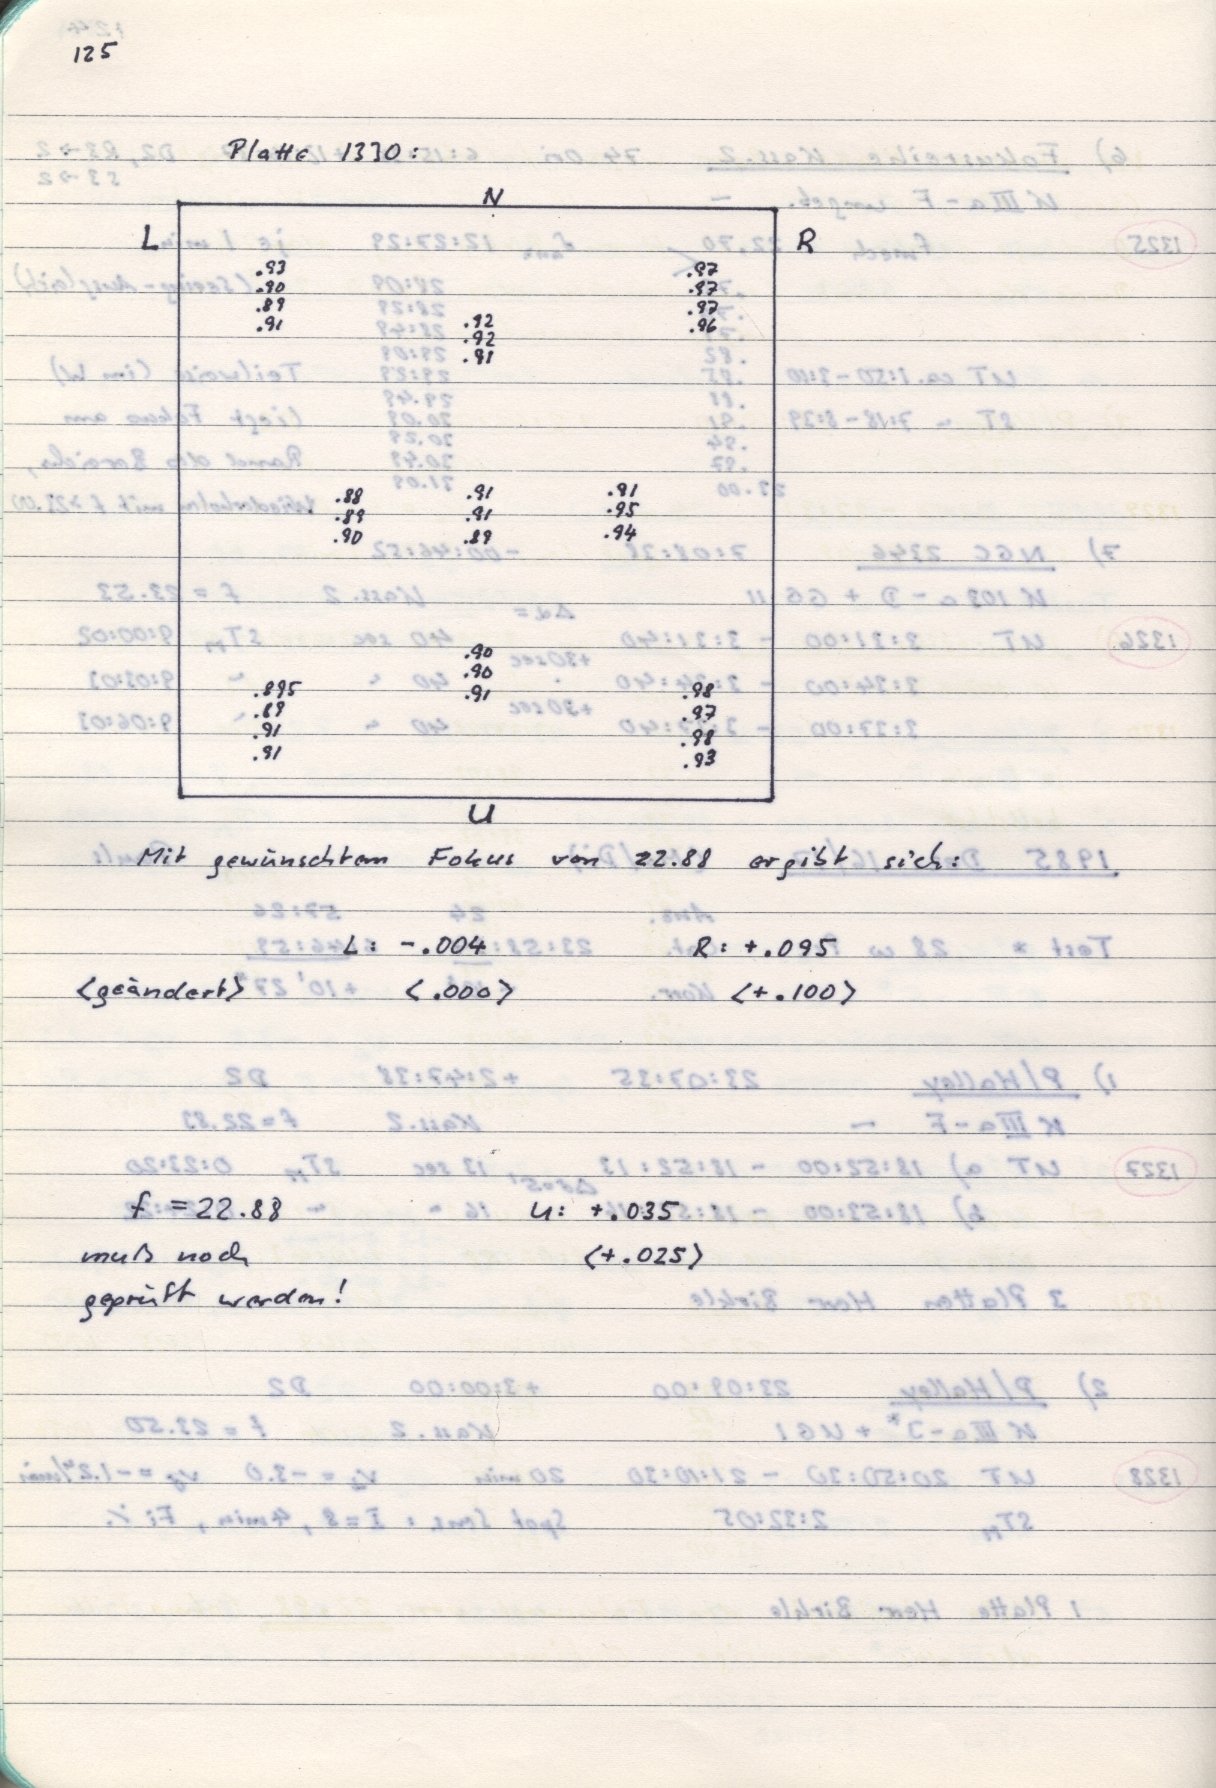 125
Platte 1330:
N
L R
.93 .97
.90 .97
.89 .97
.91 .92 .96
.92
.91
.88 .91 .91
.89 .91 .95
.90 .89 .94
.90
.90
.895 .91 .98
.89 .97
.91 .98
.91 .93
U
Mit gewünschtem Fokus von 22.88 ergibt sich:
L: -.004 R: +.095
<geändert> <.000> <+.100>
f = 22.88 U: +.035
muß noch <+.025>
geprüft werden!